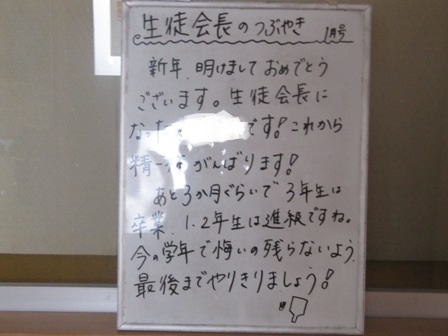 生徒会長のつぶやき 1月号
新年、明けまして おめでとう
ございます。生徒会長に
なった です!これから
精一杯 がんばります!
あと3か月ぐらいで 3年生は
卒業、1・2年生は進級ですね。
今の学年で悔いの残らないよう、
最後までやりきりましょう!